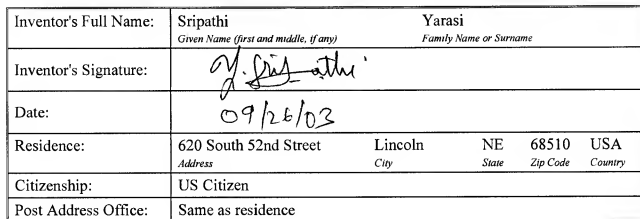 Inventor's Full Name: Sripathi Yarasi
Given Name (first and middle, if any) Family Name or Surname
Inventor's Signature: Y. Sripathi
Date: 09/26/03
Residence: 620 South 52nd Street Lincoln NE 68510 USA
Address City State Zip Code Country
Citizenship: US Citizen
Post Address Office: Same as residence